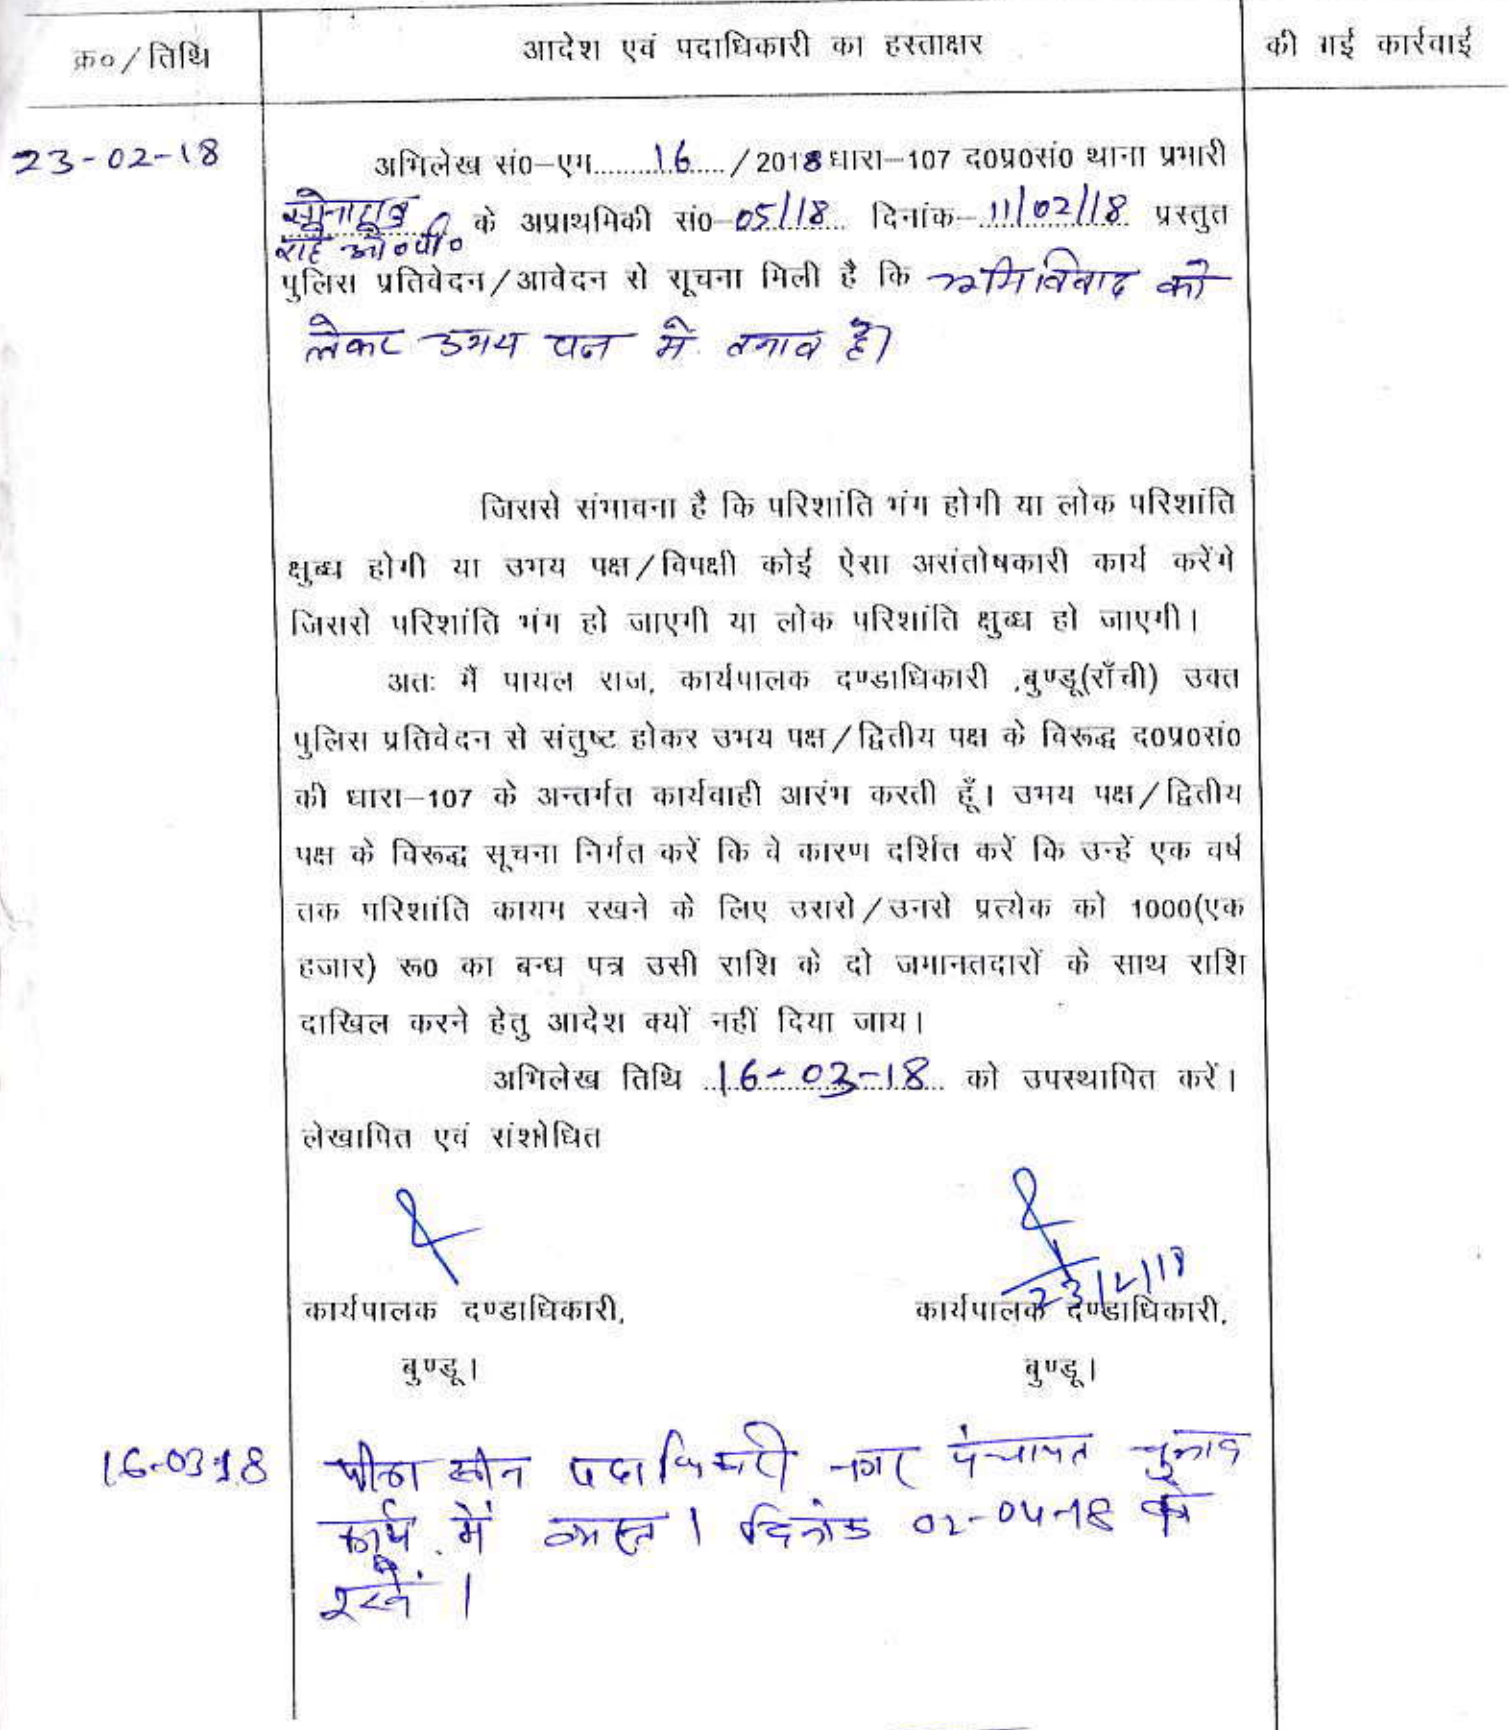 क्र०/तिथि
आदेश एवं पदाधिकारी का हस्ताक्षर
की गई कार्रवाई
23-02-18
अभिलेख सं०-एम.........16...../2018 धारा-107 द०प्र०सं० थाना प्रभारी
सोनाहातु
राहे ओ०पी०
के अप्राथमिकी सं०-05/18.. दिनांक-11/02/18 प्रस्तुत
पुलिस प्रतिवेदन/आवेदन से सूचना मिली है कि भूमि विवाद को
लेकर उभय पक्ष में तनाव है।
जिससे संभावना है कि परिशांति भंग होगी या लोक परिशांति
क्षुब्ध होगी या उभय पक्ष/विपक्षी कोई ऐसा असंतोषकारी कार्य करेंगे
जिससे परिशांति भंग हो जाएगी या लोक परिशांति क्षुब्ध हो जाएगी।
अतः मैं पायल राज, कार्यपालक दण्डाधिकारी ,बुण्डू(राँची) उक्त
पुलिस प्रतिवेदन से संतुष्ट होकर उभय पक्ष/द्वितीय पक्ष के विरूद्ध द०प्र०सं०
की धारा-107 के अन्तर्गत कार्यवाही आरंभ करती हूँ। उभय पक्ष/द्वितीय
पक्ष के विरूद्ध सूचना निर्गत करें कि वे कारण दर्शित करें कि उन्हें एक वर्ष
तक परिशांति कायम रखने के लिए उससे/उनसे प्रत्येक को 1000(एक
हजार) रू0 का बन्ध पत्र उसी राशि के दो जमानतदारों के साथ राशि
दाखिल करने हेतु आदेश क्यों नहीं दिया जाय।
अभिलेख तिथि ..16-03-18.. को उपस्थापित करें।
लेखापित एवं संशोधित
23/2/18
कार्यपालक दण्डाधिकारी,
कार्यपालक दण्डाधिकारी,
बुण्डू।
बुण्डू।
16-03-18
पीठासीन पदाधिकारी नगर पंचायत चुनाव
कार्य में व्यस्त। दिनांक 02-04-18 को
रखें।